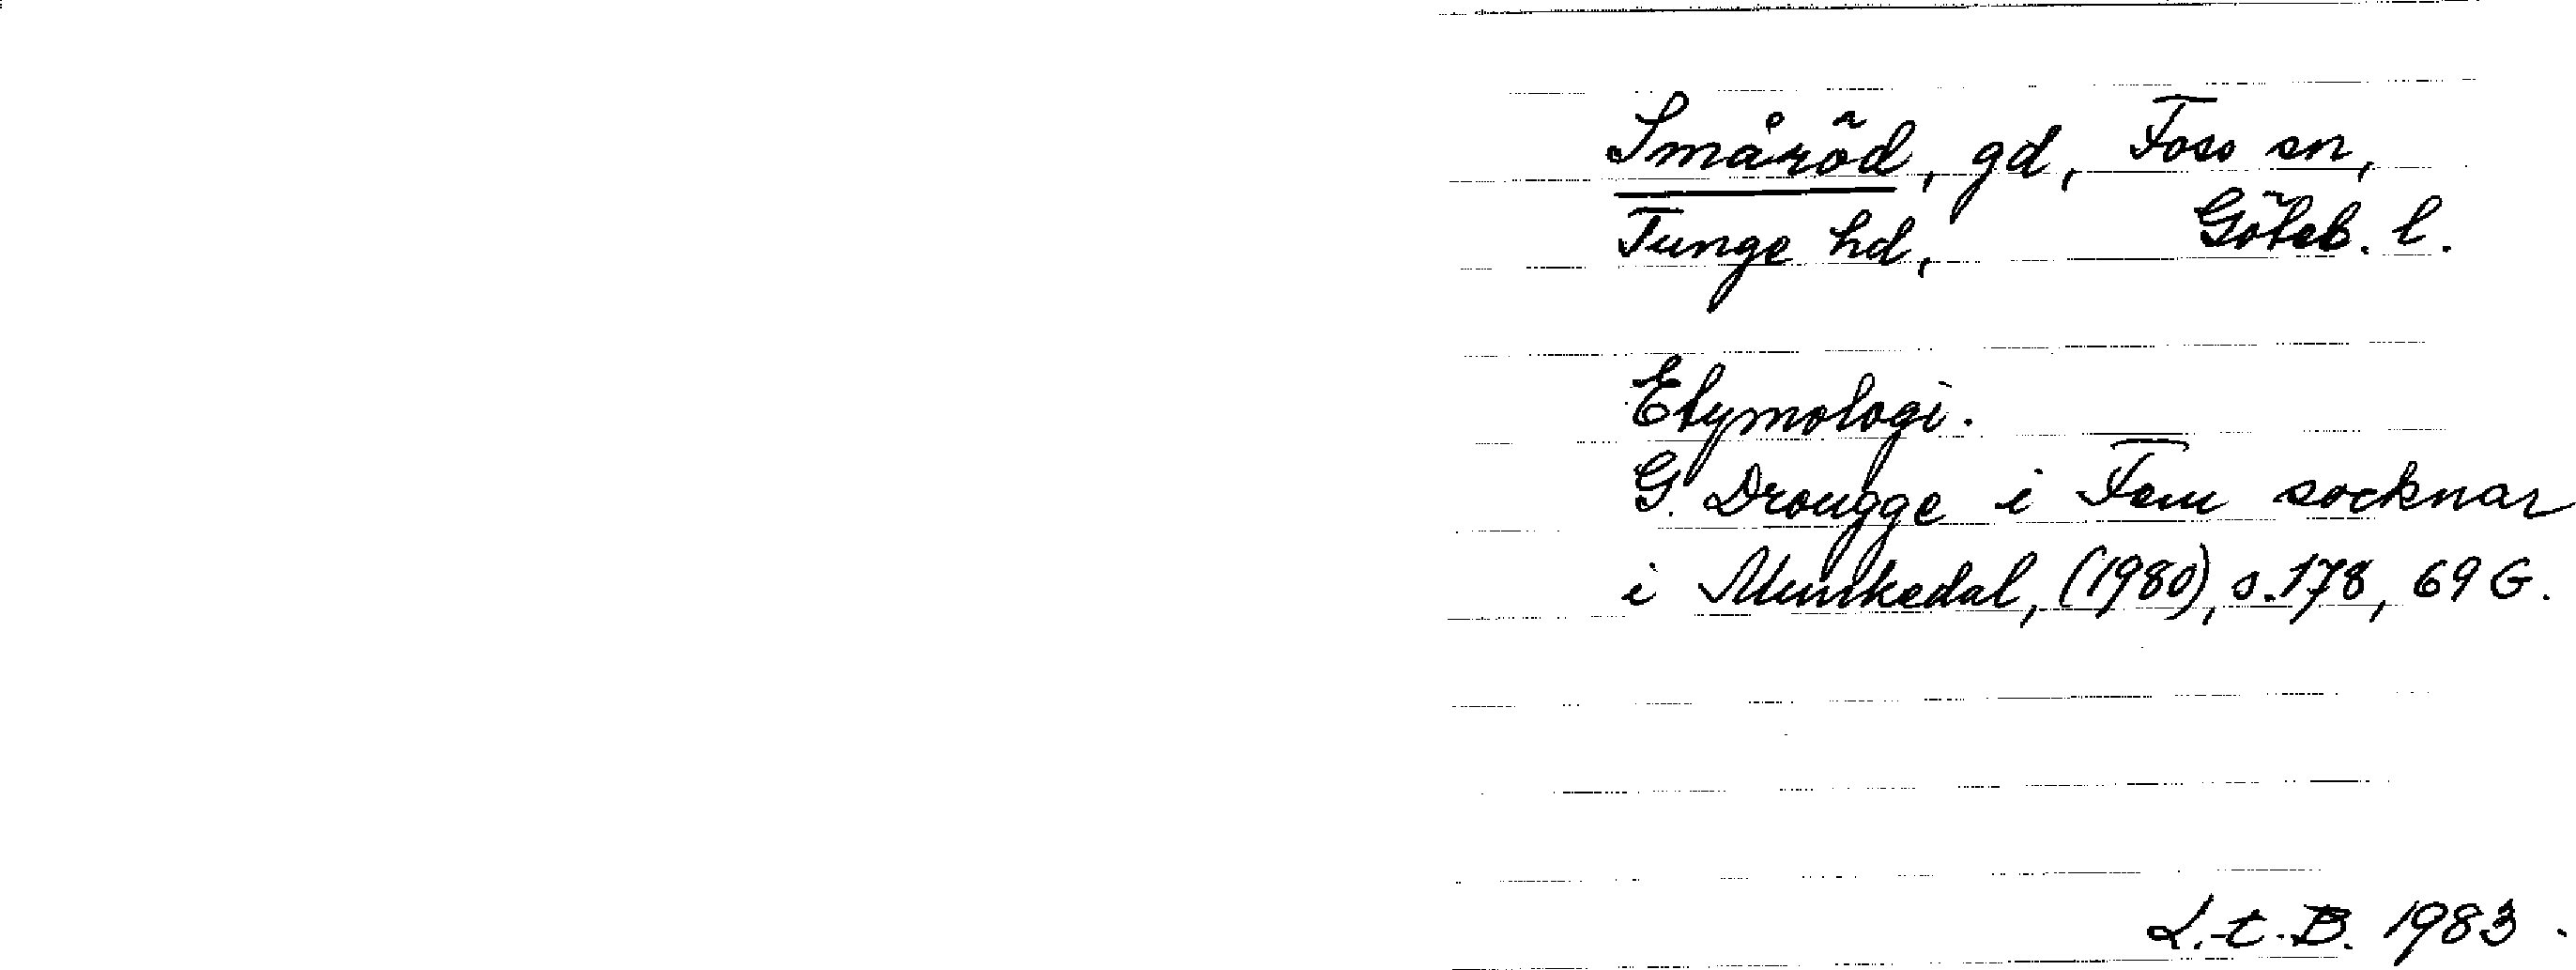 Småröd, gd, Foss sn,
Tunge hd, Göteb. l.
Etymologi.
G. Drougge i Fem socknar
i Munkedal, (1980), s. 178, 69 G.
L.t.B. 1983.